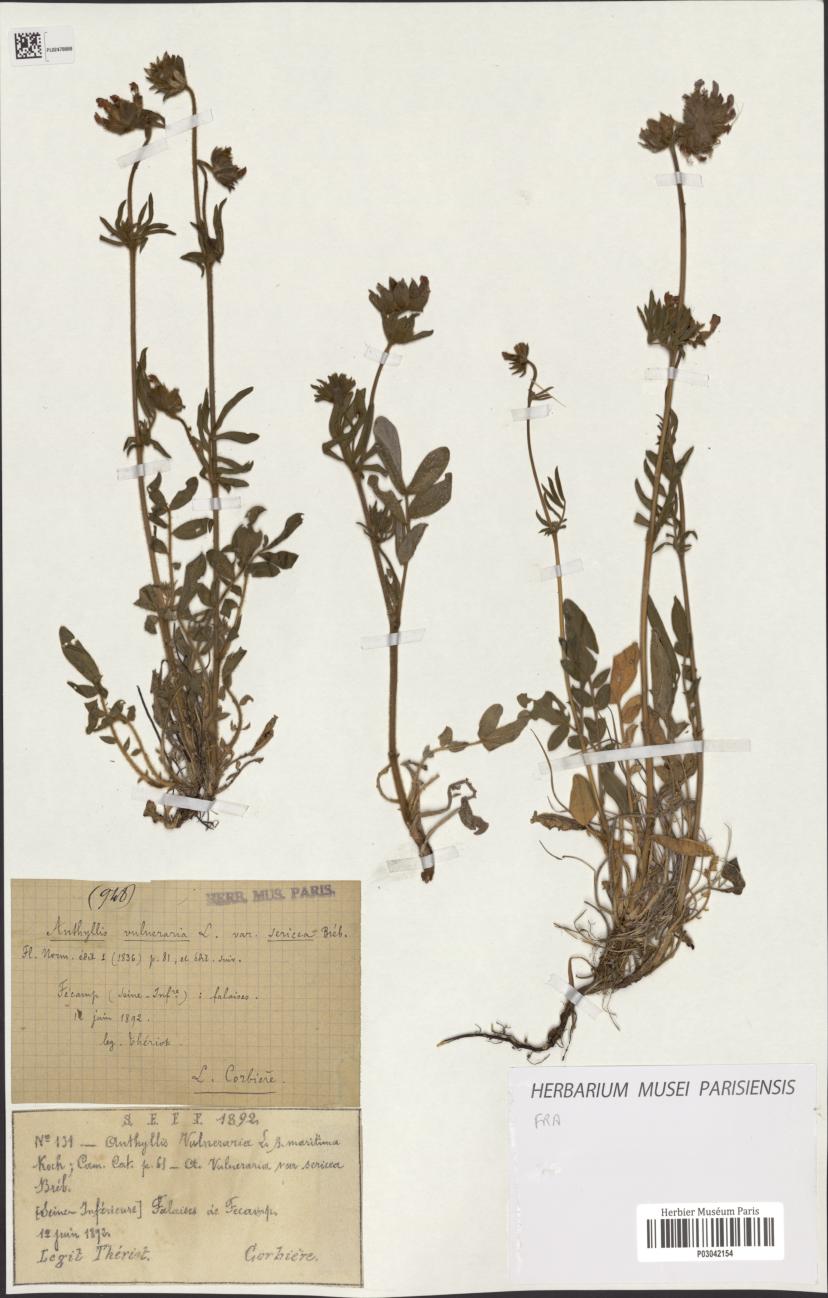 PL02478809
(948)
HERB. MUS. PARIS.
Anthyllis vulneraria L. var. sericea Bréb.
Fl. Norm. édit 1 (1836) p. 81, et édit. suiv.
Fécamp (Seine-Infre) : falaises.
juin 1892.
leg. Thériot.
L. Corbière.
S. E. F. F. 1892
No 131 — Anthyllis Vulneraria L. β. maritima
Koch ; Cam. Cat. p. 61 — A. Vulneraria var sericea
Bréb.
[Seine-Inférieure] Falaises de Fecamp.
12 juin 1892.
Legit Thériot. Corbière.
HERBARIUM MUSEI PARISIENSIS
FRA
Herbier Muséum Paris
P03042154